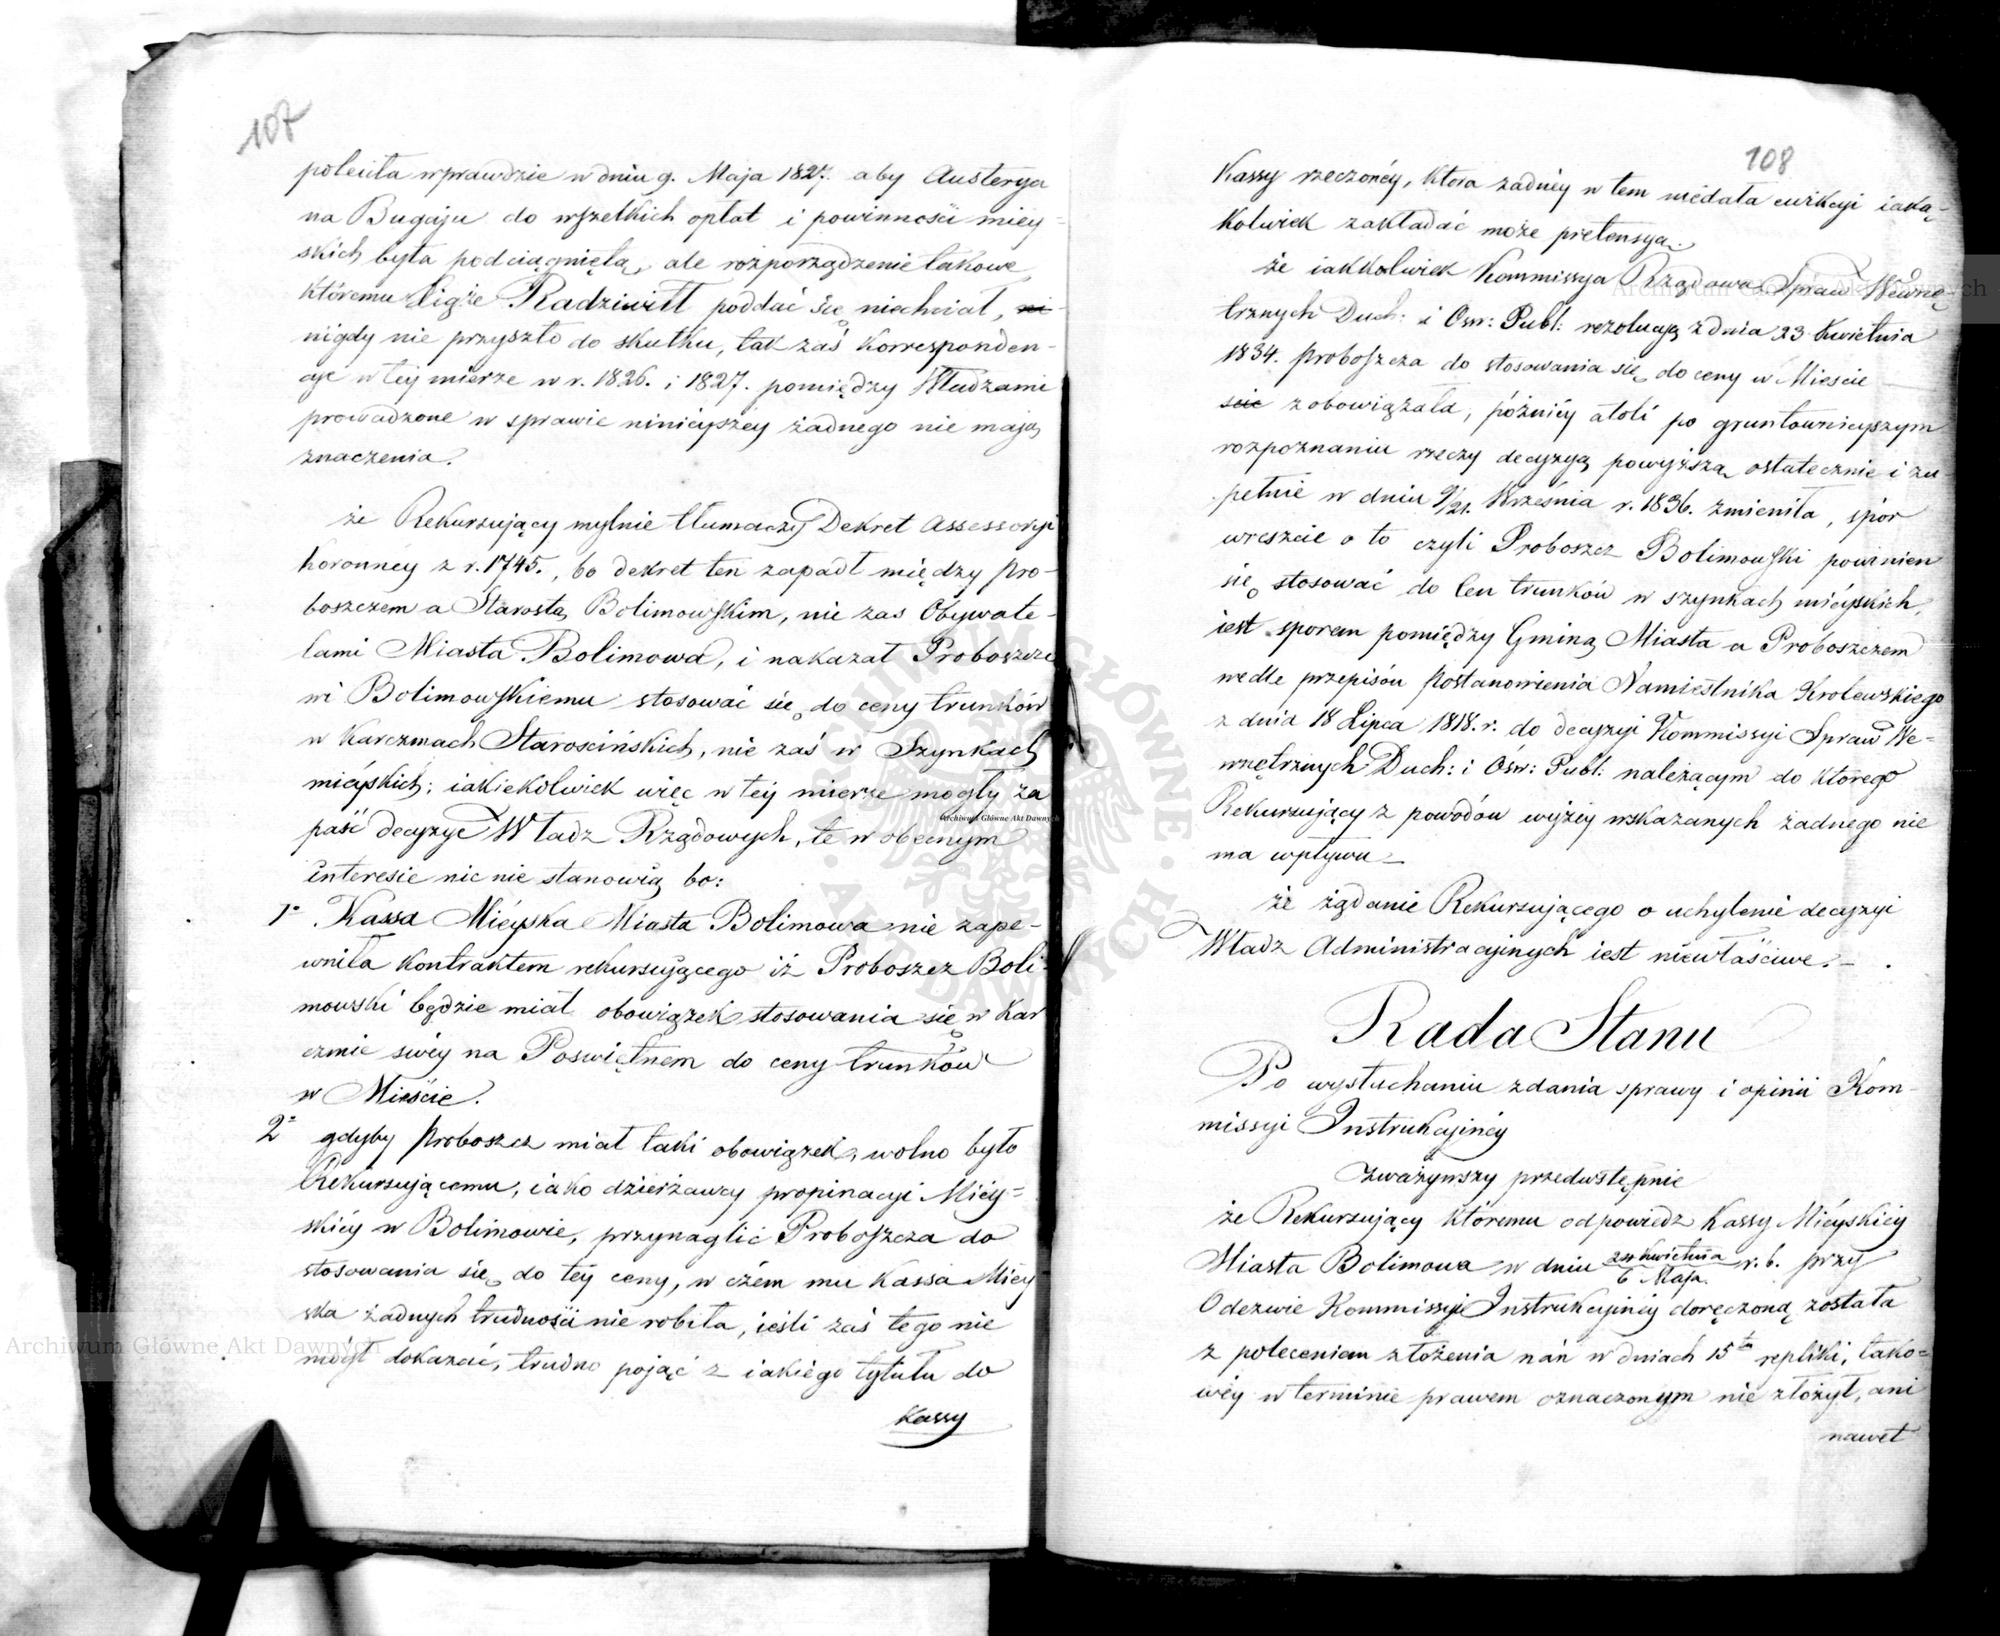 107
poleciła wprawdzie w dniu 9. Maja 1827. aby Austerya
na Bugaju do wszelkich opłat i powinności miey-
skich była podciągniętą, ale rozporządzenie takowe,
któremu Xiąże Radziwiłł poddać się niechciał, ni
nigdy nie przyszło do skutku, tak zaś korresponden-
cye w téy mierze w r. 1826. i 1827. pomiędzy Władzami
prowadzone w sprawie ninieyszéy żadnego nie mają
znaczenia.
że Rekursujący mylnie tłumaczy Dekret Assessoryi
Koronnéy z r. 1745., bo dekret ten zapadł między Pro-
boszczem a Starostą Bolimowskim, nie zas Obywate-
lami Miasta Bolimowa, i nakazał Proboszczo
wi Bolimowskiemu stosować się do ceny trunków
w Karczmach Staroscińskich, nie zaś w Szynkach
miéyskich; iakiekolwiek więc w téy mierze mogły za
paść decyzye Władz Rządowych, te w obecnym
interesie nic nie stanowią bo:
1° Kassa Miéyska Miasta Bolimowa nie zape-
wniła kontraktem rekursującego iż Proboszcz Boli-
mowski będzie miał obowiązek stosowania się w Kar
czmie swéy na Poswiętnem do ceny trunków
w Mieście.
2° gdyby Proboszcz miał taki obowiązek, wolno było
Rekursującemu, iako dzierżawcy propinacyi Miéy-
skiéy w Bolimowie, przynaglić Proboszcza do
stosowania się do téy ceny, w czém mu Kassa Miéy
ska żadnych trudności nie robiła, iésli zaś tego nie
mógł dokazać, trudno pojąć z iakiego tytułu do
Kassy
108
Kassy rzeczonéy, która żadnéy w tem niedała ewikcyi iaką-
kolwiek zakładać może pretensyą.
że iakkolwiek Kommissya Rządowa Spraw Wewnę
trznych Duch: i Osw: Publ: rezolucyą z dnia 23 kwietnia
1834. Proboszcza do stosowania się do ceny w Miescie
scie zobowiązała, późniéy atoli po gruntownieyszym
rozpoznaniu rzeczy decyzyą powyższą ostatecznie i zu
pełnie w dniu 9/21. Września r. 1836. zmieniła, spór
wreszcie o to czyli Proboszcz Bolimowski powinien
się stosować do cen trunków w szynkach miéyskich,
iest sporem pomiędzy Gminą Miasta a Proboszczem
wedle przepisów Postanowienia Namiestnika Krolewskiego
z dnia 18 Lipca 1818. r. do decyzyi Kommissyi Spraw We-
wnętrznych Duch: i Ośw: Publ: należącym do którego
Rekursujący z powodów wyżéy wskazanych żadnego nie
ma wpływu –
że żądanie Rekursującego o uchylenie decyzyi
Władz Administracyjnych iest niewłaściwe. –
Rada Stanu
Po wysłuchaniu zdania sprawy i opinii Kom-
missyi Instrukcyinéy
Zważywszy przedwstępnie
że Rekursujący któremu odpowiedz Kassy Miéyskiéy
Miasta Bolimowa w dniu 24 kwietnia / 6 Maja r. b. przy
Odezwie Kommissyi Instrukcyinéy doręczoną została
z poleceniem złożenia nań w dniach 15tu repliki, tako-
wéy w terminie prawem oznaczonym nie złożył, ani
nawet
Archiwum Główne Akt Dawnych
Archiwum Główne Akt Dawnych
Archiwum Główne Akt Dawnych
ARCHIWUM GŁÓWNE AKT DAWNYCH